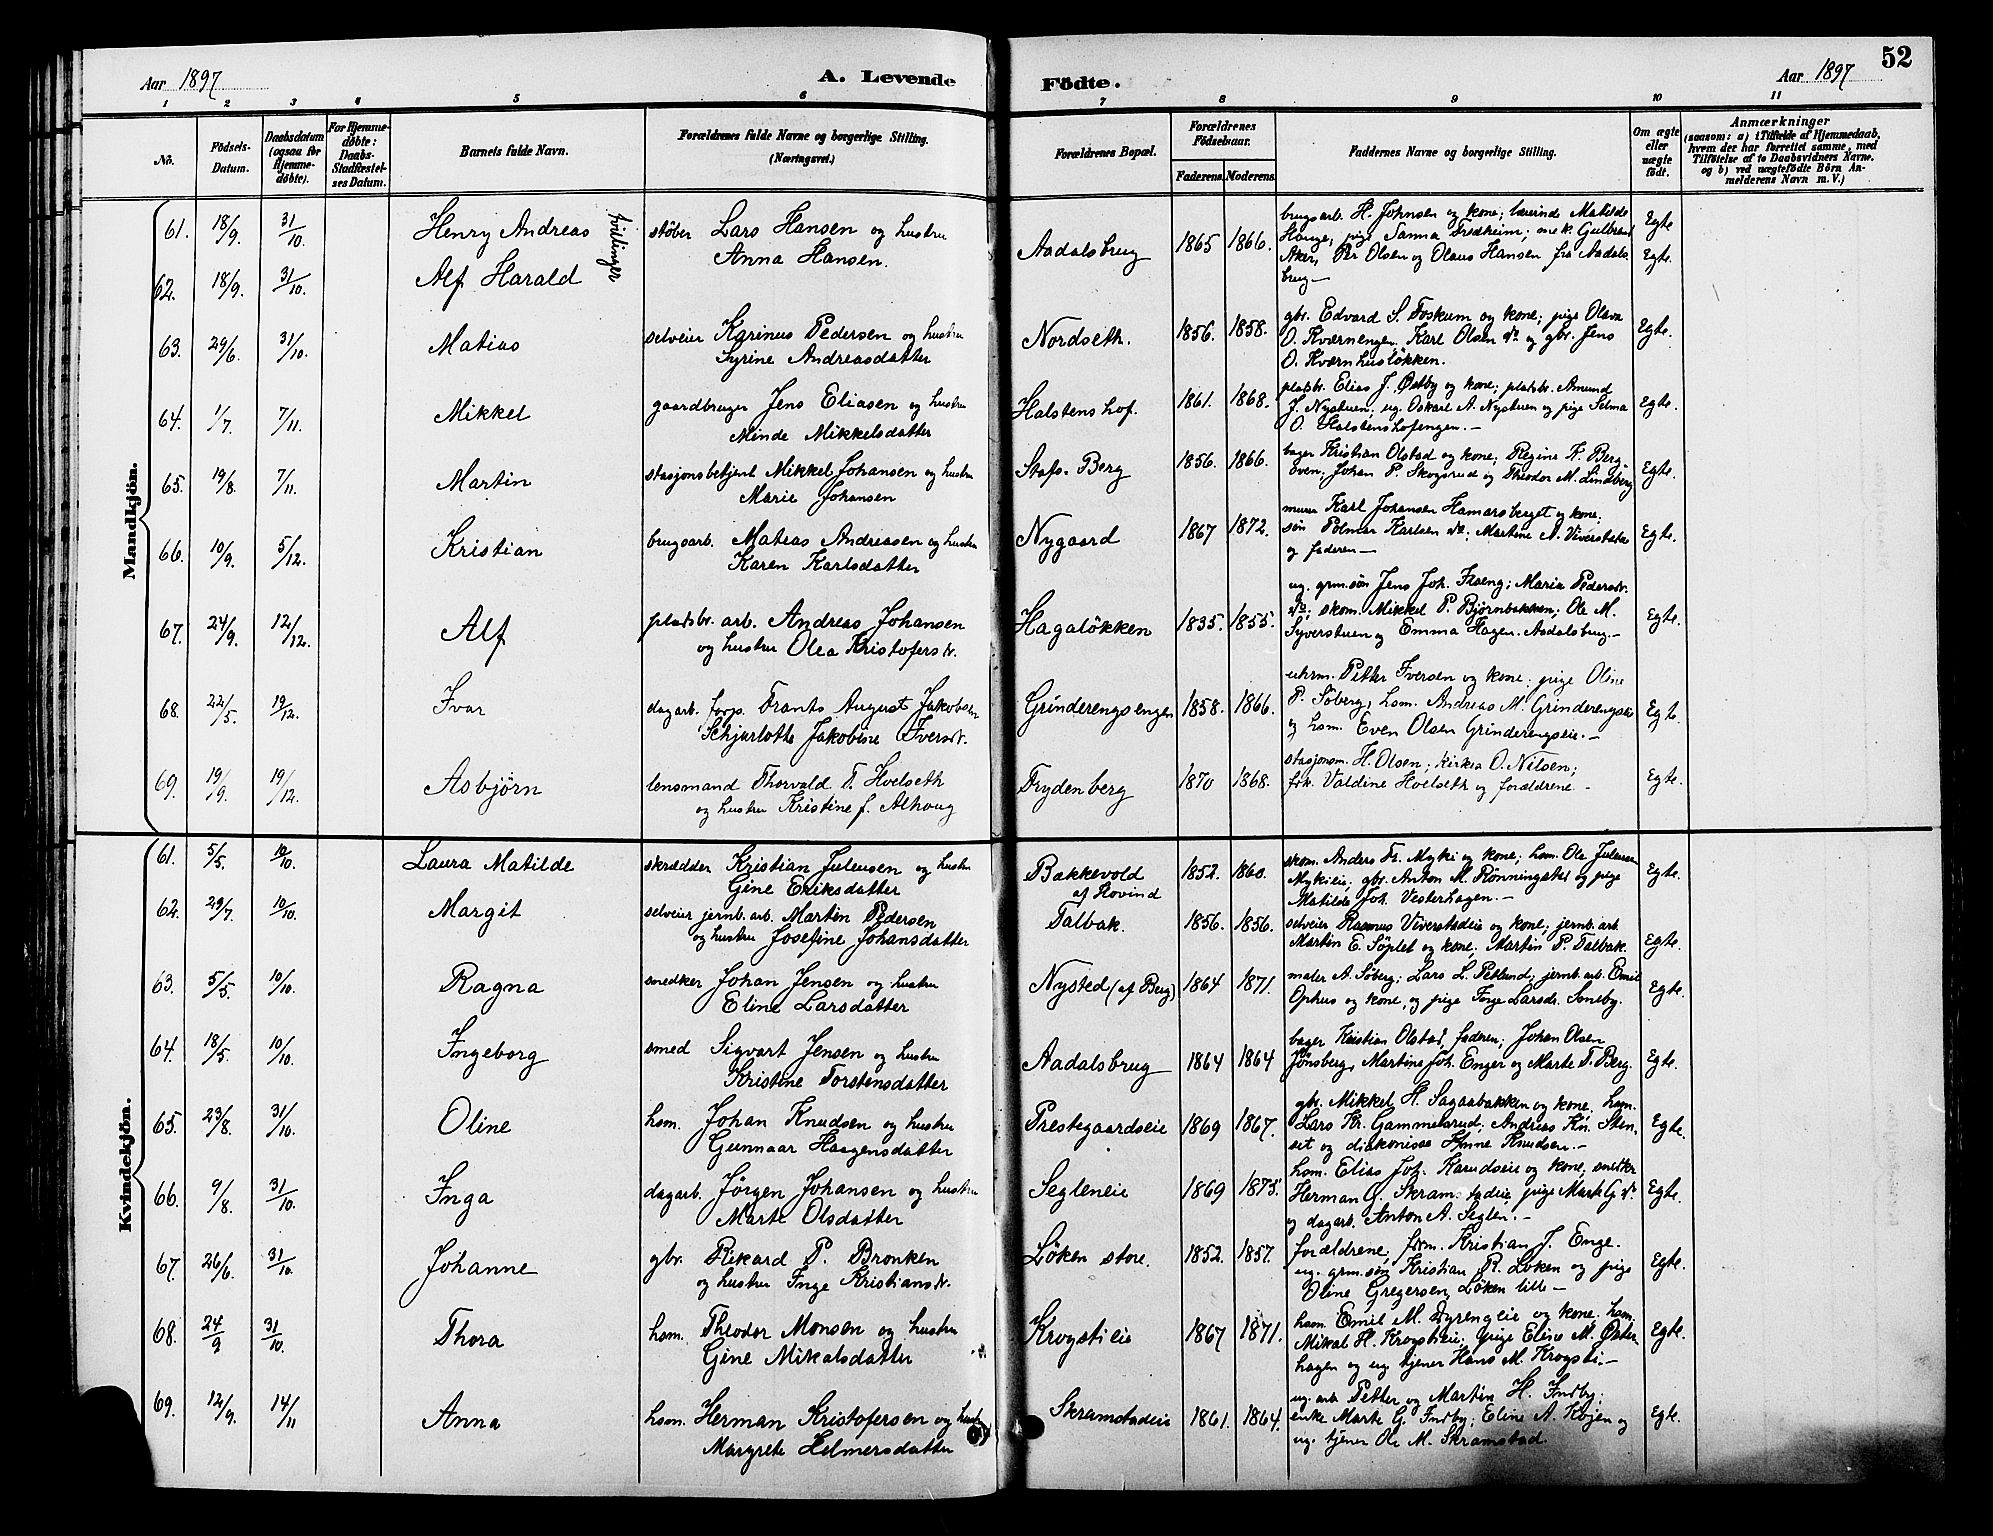 52
Aar 1897
A. Levende
Fødte.
Aar 1897
1 2 3 4 5 6 7 8 9 10 11
No.
Fødsels-Datum.
Daabsdatum (ogsaa for Hjemmedøbte).
For Hjemmedøbte: Daabs-Stadfæstelses Datum.
Barnets fulde Navn.
Forældrenes fulde Navne og borgerlige Stilling. (Næringsvei.)
Forældrenes Bopæl.
Forældrenes Fødselsaar.
Faderens. Moderens.
Faddernes Navne og borgerlige Stilling.
Om ægte eller uægte født.
Anmærkninger
(saasom: a) i Tilfælde af Hjemmedaab,
hvem der har forrettet samme, med
Tilføielse af to Daabsvidners Navne,
og b) ved uægtefødte Børn Anmelderens Navn m. V.)
Mandkjön.
61. 18/9. 31/10. Henry Andreas støber Lars Hansen og hustru Aadalsbrug 1865 1866. brugsarb. H. Johnsen og kone; lærerinde Matilde Egte
tvillinger
Anna Hansen.
Hauge, pige Sanna Fredheim;
62. 18/9. 31/10. Alf Harald Aker, Per Olsen og Olaus Hansen fra Aadalsbrug— Egte.
63. 29/6. 31/10. Matias selveier Karinus Pedersen og hustru Nordseth. 1856. 1858. gbr. Edvard S. Foskum og kone; pige Olava Egte.
Syrine Andreasdatter
O. Kværnengen, Karl Olsen do og gbr. Jens
O. Kværnhusløkken.
64. 1/7. 7/11. Mikkel gaardbruger Jens Eliasen og hustru Halstenshof. 1861. 1868. pladsbr. Elias J. Østby og kone; pladsbr. Amund Egte.
Minde Mikkelsdatter
J. Nystuen, ug. Oskarl A. Nystuen og pige Selma
O. Halstenshofengen.—
65. 19/8. 7/11. Martin stasjonsbetjent Mikkel Johansen og hustru Berg 1856. 1866. bager Kristian Olstad og kone; Regine K. Berg Egte.
Marie Johansen
Johan P. Skogsrud og Theodor M. Lindberg
66. 10/9. 5/12. Kristian brugsarb. Matias Andreasen og hustru Nygaard 1867 1872. murer Karl Johansen Hamarsberget og kone; Egte.
Karen Karlsdatter
søn Polmar Karlsen do; Martine A.
og faderen—
67. 24/9. 12/12. Alf pladsbr. arb. Andreas Johansen Hagaløkken 1835. 1855. ug. grm.søn Jens Joh. Haeng; Maria Pedersdr. Egte.
og hustru Olea Kristofersdr.
do, skom. Mikkel P. Bjørnbakken; Ole M.
Syverstuen og Emma Hagen. Aadalsbrug.—
68. 22/5. 19/12. Ivar dagarb. Frants August Jakobsen Grinderengsengen 1858. 1866. uhrm. Petter Iversen og kone; pige Oline Egte.
Schjarlotte Jakobine Iversdr.
P. Søberg, hsm. Andreas M. Grinderengseie
og hsm. Even Olsen Grinderengseie.—
69. 19/9. 19/12. Asbjörn lensmand Thorvald T. Hoelseth Frydenberg 1870 1868. stasjonsm. H. Olsen; O. Nilsen; Egte.
og hustru Kristine f. Alhoug
frk. Valdine Hoelseth og forældrene—
Kvindekjön.
61. 5/5. 10/10. Laura Matilde skrædder Kristian Juleusen og hustru Bakkevold 1852. 1860. skom. Anders Fr. Myki og kone; hsm. Ole Juleusen Egte.
Gine Eriksdatter
af Hovind
Mykieie; gbr. Anton M. Rønningstet og pige
Matilde Joh. Vesterhagen.—
62. 29/7. 10/10. Margit selveier jernb. arb. Martin Pedersen Talbak. 1856. 1856. selveier Rasmus Viverstadeie og kone; jernb. arb. Egte.
og hustru Josefine Johansdatter
Martin E. Søplet og kone; Martin P. Talbak
63. 5/5. 10/10. Ragna snedker Johan Jensen og hustru Nysted (af Berg) 1864 1871. maler A. Søberg; Lars L. Petlund; jernb. arb. Emil Egte.
Eline Larsdatter
Ophus og kone, og pige Inge Larsdr. Smeby.
64. 18/5. 10/10. Ingeborg smed Sigvart Jensen og hustru Aadalsbrug 1864 1864 bager Kristian Olstad, faderen; Johan Olsen Egte.
Kristine Torstensdatter
Jønsberg, Martine Joh. Enger og Marte T. Berg.
65. 23/8. 31/10. Oline hsm. Johan Knudsen og hustru Prestegaardseie 1869 1867. gbr. Mikkel H. Sagaabakken og kone, hsm. Egte.
Gunnaar Haagensdatter
Lars Kr. Gammelsrud, Andreas Kn. Stenset og diakonisse Anne Knudsen.—
66. 9/8. 31/10. Inga dagarb. Jörgen Johansen og hustru Segleneie 1869 1875. hsm. Elias Joh. Karudseie og kone, snedker Egte.
Marte Olsdatter
Herman G. Skramstadeie, pige Marte G. do
og dagarb. Anton A. Seglen.—
67. 26/6. 31/10. Johanne gbr. Rikard P. Bronken Løken store. 1852. 1857. forældrene; Kristian J. Enge. Egte.
og hustru Inge Kristiansdr.
ug. grm. søn Kristian R. Løken og pige
Oline Gregersen, Løken lille—
68. 24/9 31/10. Thora hsm. Theodor Monsen og hustru Krogstieie 1867 1871. hsm. Emil M. Dyrengeie og kone. hsm. Egte.
Gine Mikalsdatter
Mikal H. Krogstieie; pige Eline M. Østerhagen og ug. tjener Hans M. Krogsti.—
69. 12/9. 14/11 Anna hsm. Herman Kristofersen og hustru Skramstadeie 1861. 1864. ug. arb. Petter og Martin H. Indby; Egte.
Margrete Helmersdatter
enke Marte G. Indby; Eline A. Kojen og
ug. tjener Ole M. Skramstad.